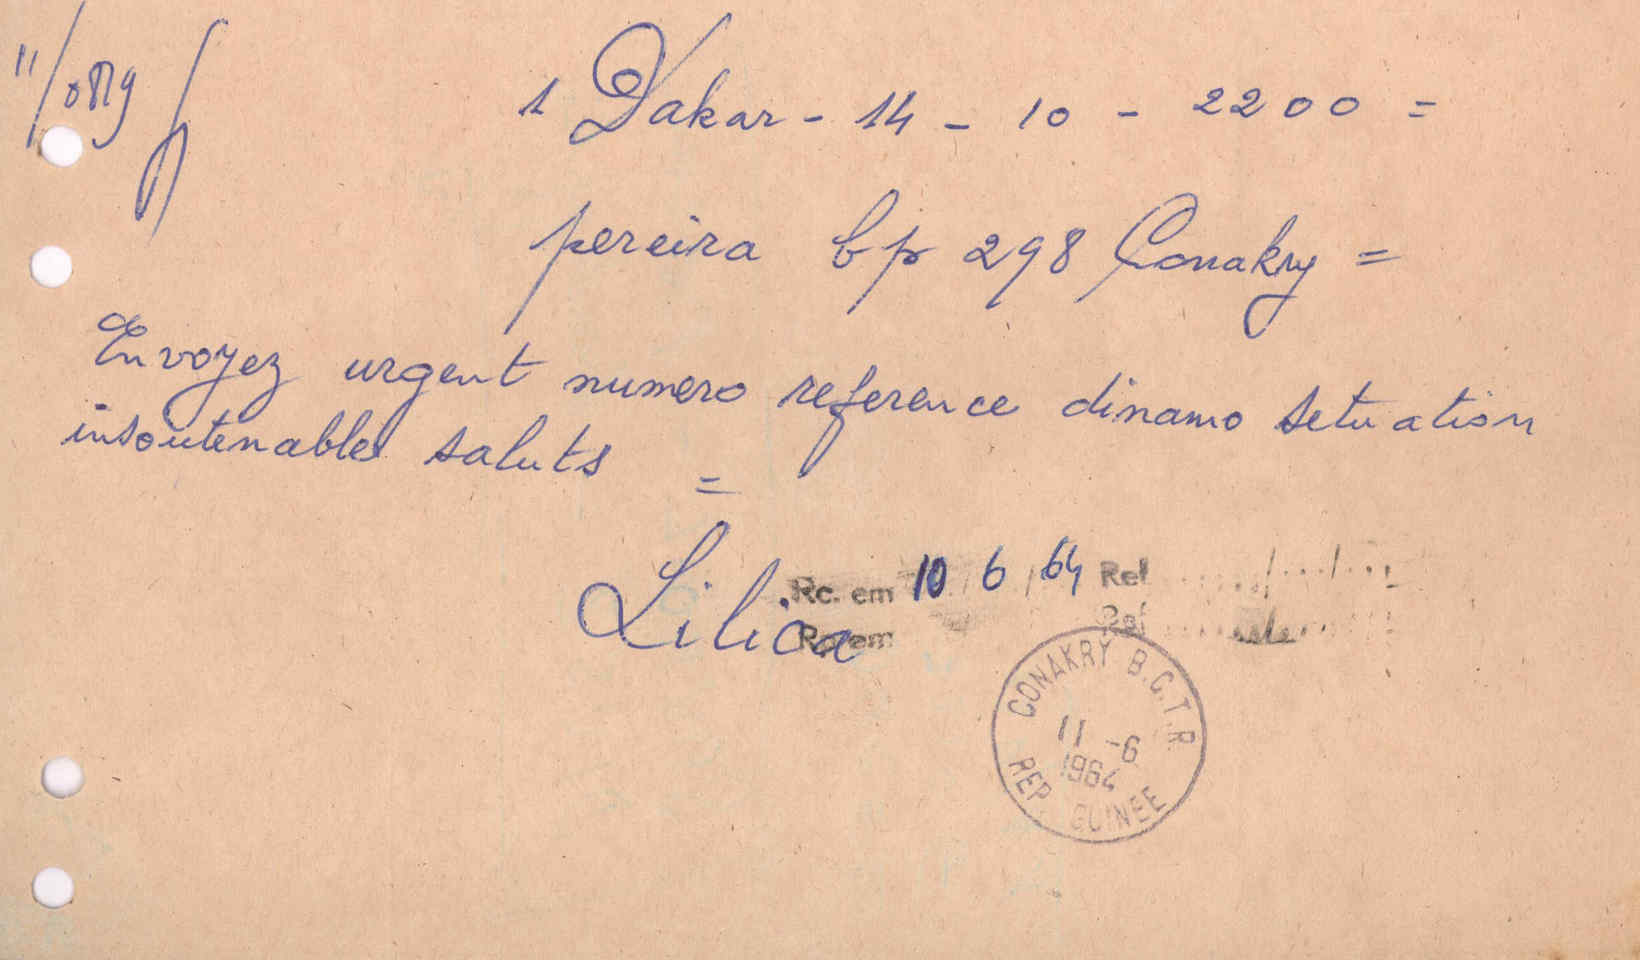 1 Dakar - 14 - 10 - 2200 =
pereira bp 298 Conakry =
Envoyez urgent numero reference dinamo setuation
insoutenable saluts =
Lilica
Rc. em 10 6 64 Ref
Rc. em Ref
CONAKRY B.C.T.R.
11 -6
1964
REP. GUINEE